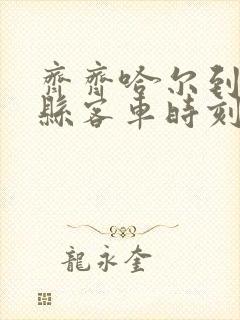 齊齊哈尔到
縣客車時刻
龍永奎